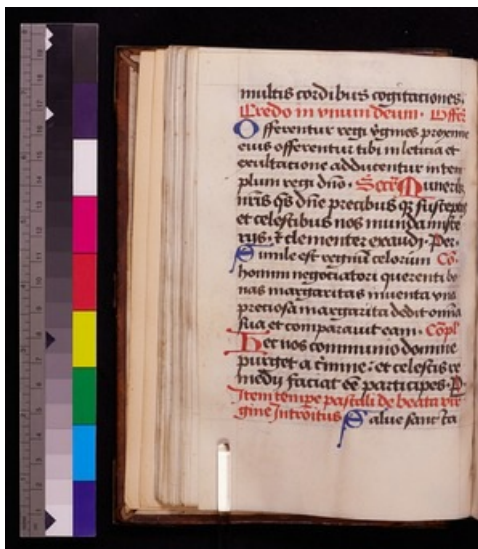 multis cordibus cogitationes.
Credo in vnum deum. Offer̄
Offerentur regi v̄gines proxime
eius offerentur tibi in leticia et
exultatione adducentur in tem
plum regi dn̄o. Secr̄ Muneribꝰ
nr̄is q̄s dn̄e precibus qꝫ susceptis
et celestibus nos munda miste
rijs. ⁊ clementer exaudi. Per.
Simile est regnū celorum Cō.
homini negociatori querenti bo
nas margaritas inuenta vna
preciosa margarita dedit omīa
sua et comparauit eam. Cōpl̄
Hec nos communio domine
purget a crimīe: et celestis re
medij faciat eē participes. P.
Item tempe pascali de beata vir
gine Introitus Salue sancta